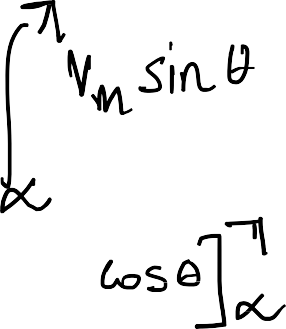 ∫_α^π V_m sin θ
cos θ]_α^π